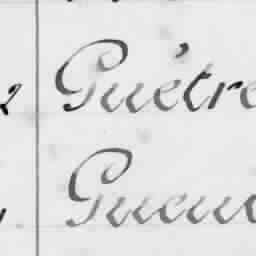 2 Guêtre
Gueu